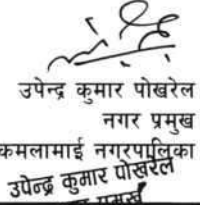 उपेन्द्र कुमार पोखरेल
नगर प्रमुख
कमलामाई नगरपालिका
उपेन्द्र कुमार पोखरेल
प्रमुख